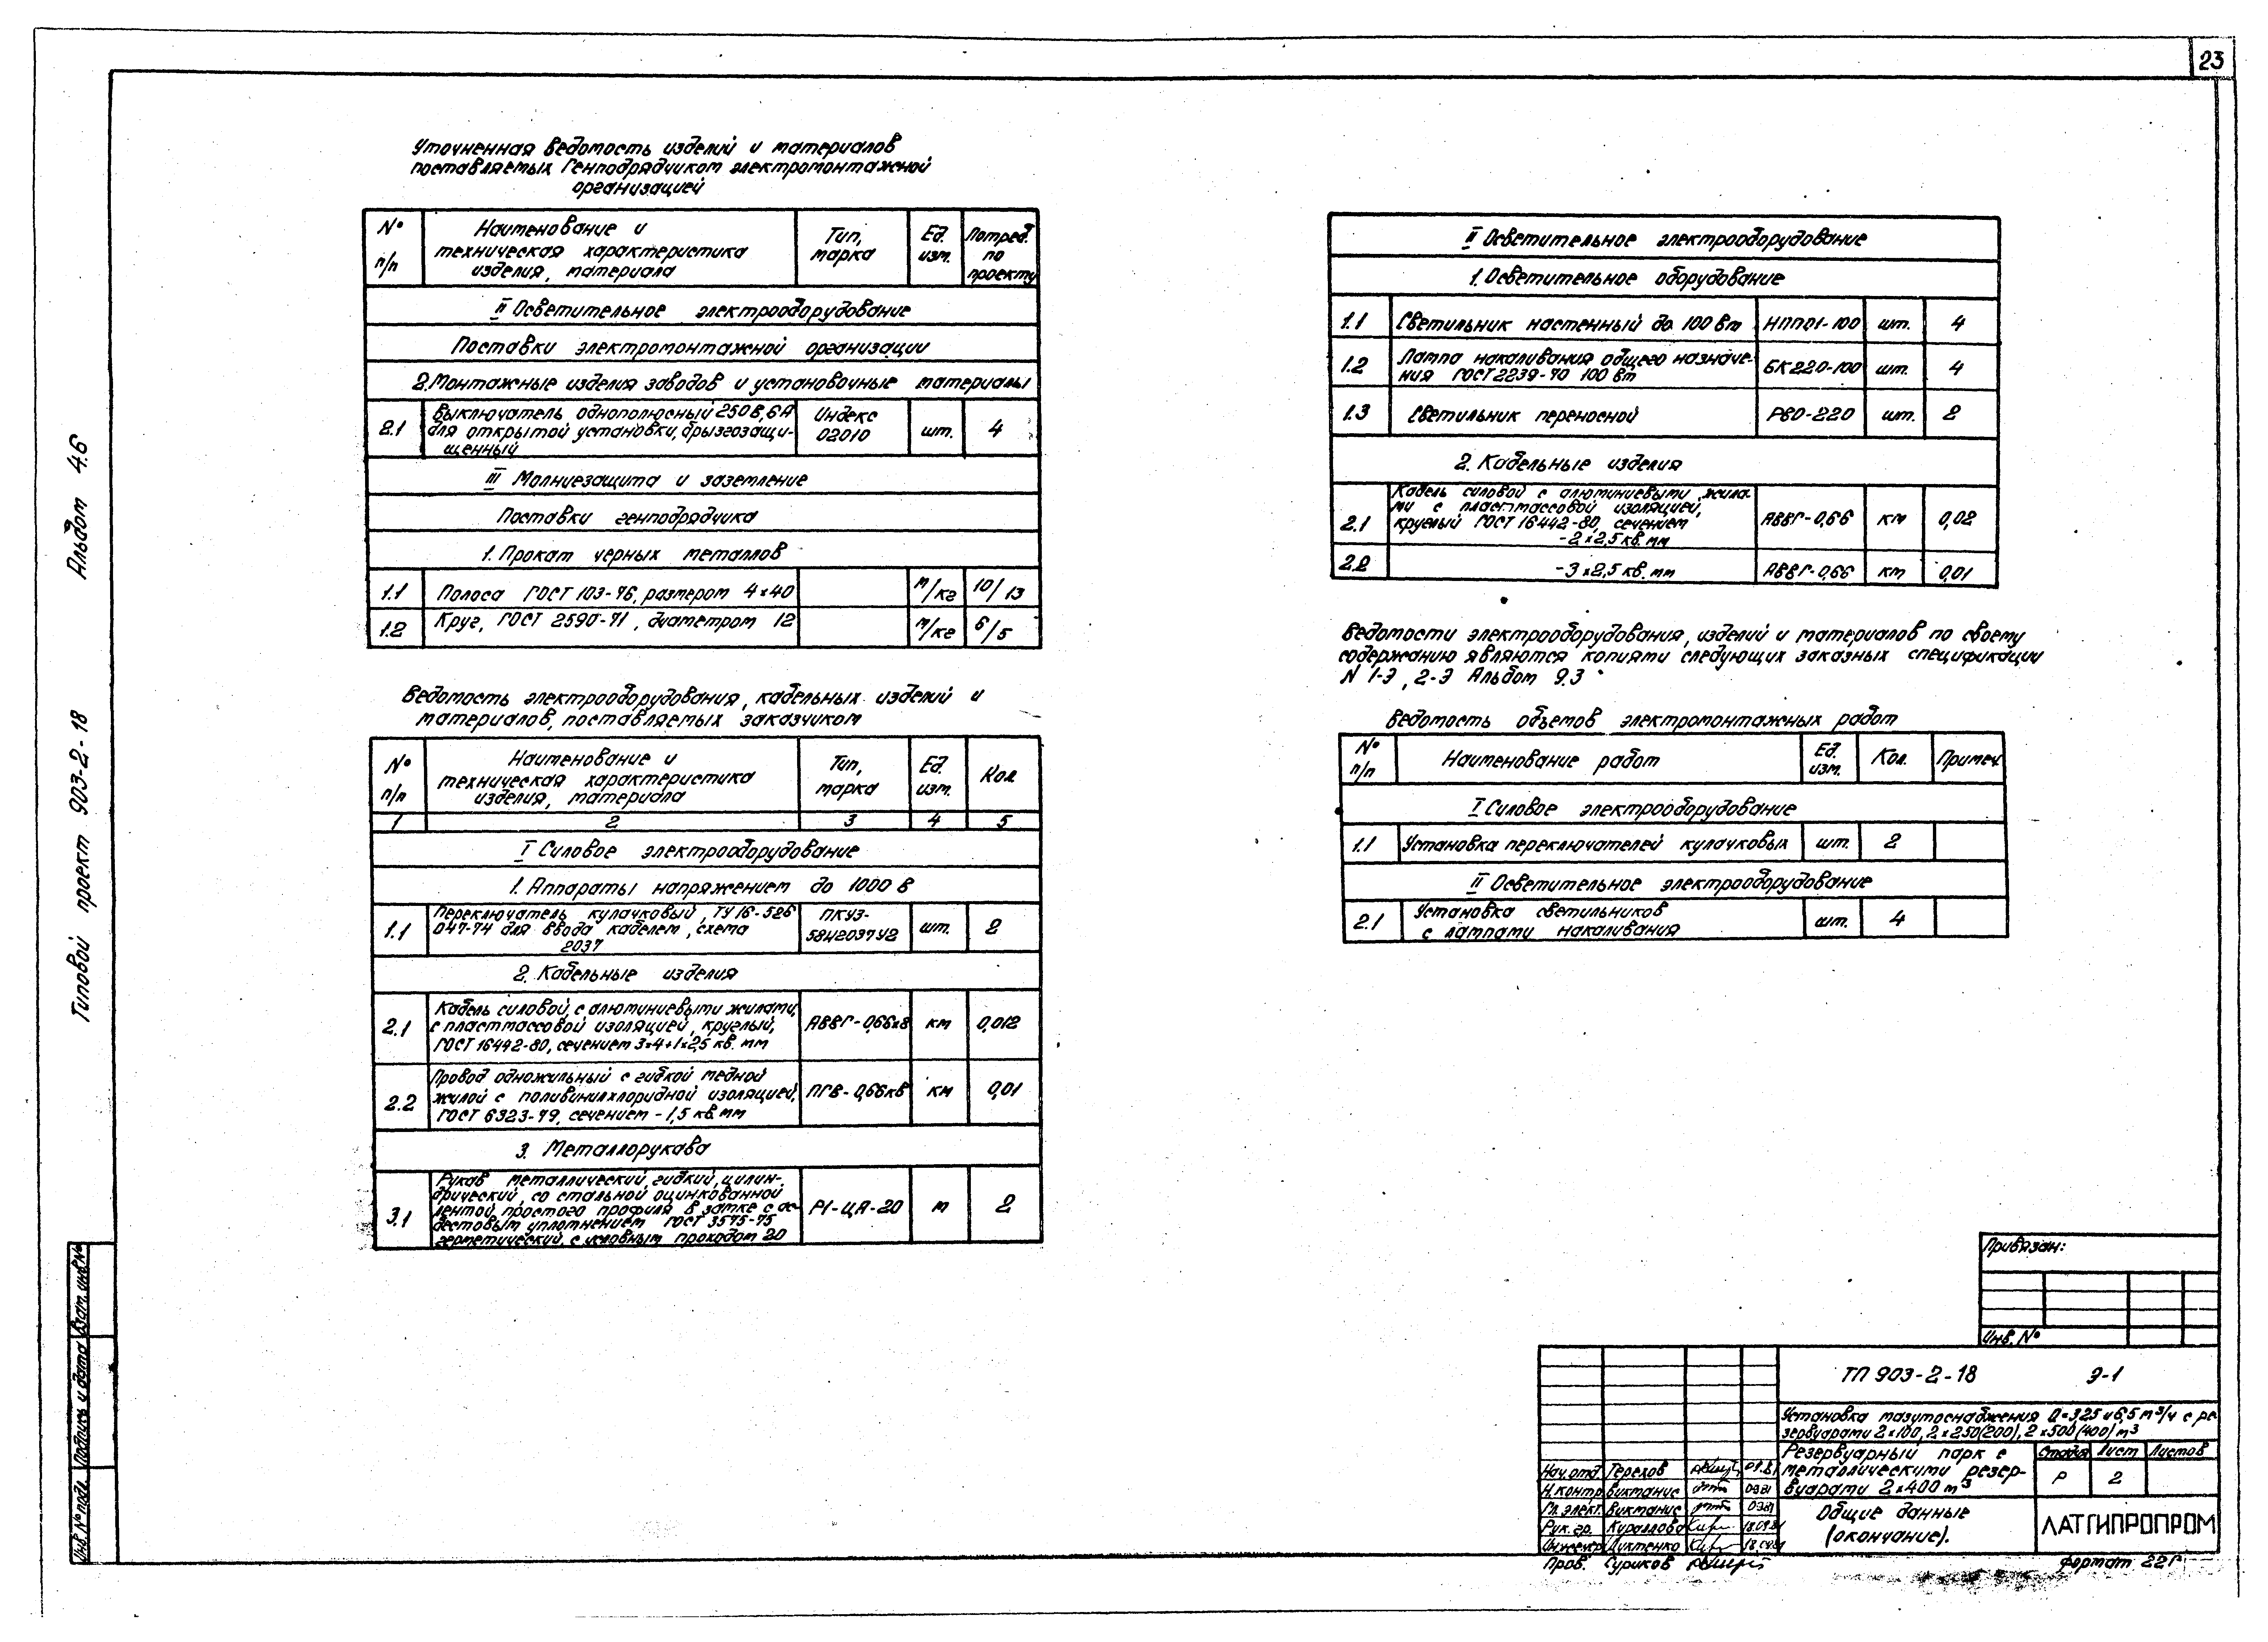 23
Уточненная ведомость изделий и материалов
поставляемых Генподрядчиком электромонтажной
организацией
№ п/п
Наименование и техническая характеристика изделия, материала
Тип, марка
Ед. изм.
Потреб. по проекту
II Осветительное электрооборудование
Поставки электромонтажной организации
2. Монтажные изделия заводов и установочные материалы
2.1 Выключатель однополюсный 250В, 6А Индекс
для открытой установки, брызгозащи- 02010 шт. 4
щенный
III Молниезащита и заземление
Поставки генподрядчика
1. Прокат черных металлов
1.1 Полоса ГОСТ 103-76, размером 4×40 м/кг 10/13
1.2 Круг, ГОСТ 2590-71, диаметром 12 м/кг 6/5
Ведомость электрооборудования, кабельных изделий и
материалов, поставляемых заказчиком
№ п/п
Наименование и техническая характеристика изделия, материала
Тип, марка
Ед. изм.
Кол.
1 2 3 4 5
I Силовое электрооборудование
1. Аппараты напряжением до 1000 В
1.1 Переключатель кулачковый, ТУ 16-526 ПКУ3-
047-74 для ввода кабелем, схема 58И2037У2 шт. 2
2037
2. Кабельные изделия
Кабель силовой, с алюминиевыми жилами,
2.1 с пластмассовой изоляцией, круглый, АВВГ-0,66кВ км 0,012
ГОСТ 16442-80, сечением 3×4+1×2,5 кв. мм
Провод одножильный с гибкой медной
2.2 жилой с поливинилхлоридной изоляцией, ПГВ-0,66кВ км 0,01
ГОСТ 6323-79, сечением - 1,5 кв. мм
3. Металлорукава
Рукав металлический, гибкий, цилин-
дрический, со стальной оцинкованной
3.1 лентой, простого профиля в замке с ас- Р1-ЦА-20 м 2
бестовым уплотнением ГОСТ 3575-75
герметический, с условным проходом 20
II Осветительное электрооборудование
1. Осветительное оборудование
1.1 Светильник настенный до 100 Вт НПП01-100 шт. 4
1.2 Лампа накаливания общего назначе- БК220-100 шт. 4
ния ГОСТ 2239-70 100 Вт
1.3 Светильник переносной РВО-220 шт. 2
2. Кабельные изделия
Кабель силовой с алюминиевыми жила-
ми с пластмассовой изоляцией,
2.1 круглый ГОСТ 16442-80, сечением АВВГ-0,66 км 0,02
-2×2,5 кв. мм
2.2 -3×2,5 кв. мм АВВГ-0,66 км 0,01
Ведомости электрооборудования, изделий и материалов по своему
содержанию являются копиями следующих заказных спецификации
N 1-Э, 2-Э Альбом 9.3
Ведомость объемов электромонтажных работ
№ п/п
Наименование работ
Ед. изм.
Кол.
Примеч.
I Силовое электрооборудование
1.1 Установка переключателей кулачковых шт. 2
II Осветительное электрооборудование
2.1 Установка светильников шт. 4
с лампами накаливания
Альбом 4.6
Типовой проект 903-2-18
Взам. инв. №
Подпись и дата
Инв. № подл.
Привязан:
Инв. №
ТП 903-2-18 Э-1
Установка мазутоснабжения Q=3,25 и 6,5 м³/ч с ре-
зервуарами 2×100, 2×250(200), 2×500(400) м³
Резервуарный парк с
металлическими резер-
вуарами 2×400 м³
Стадия Лист Листов
Р 2
Общие данные
(окончание).
ЛАТГИПРОПРОМ
Нач. отд. Терехов
Н. контр. Виктанис 09.81
Гл. элект. Виктанис 09.81
Рук. гр. Кираллова 18.09.81
Инженер Диктенко 18.09.81
Пров. Суриков
Формат 22Г